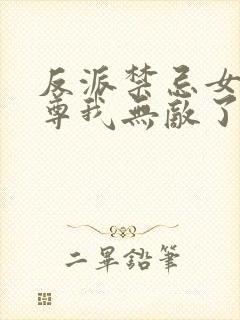 反派禁忌女
尊我無敵了
二畢鉛筆